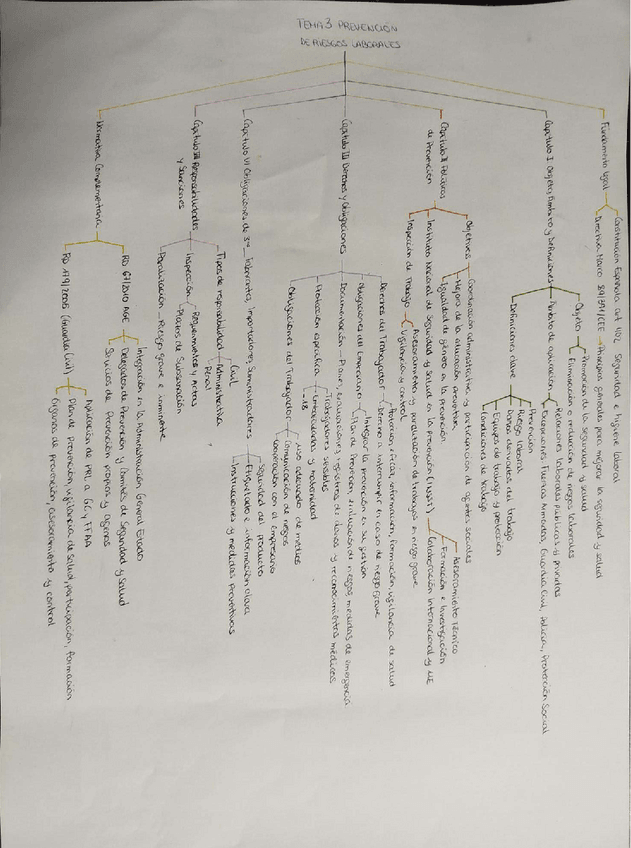 TEMA 3 PREVENCIÓN
DE RIESGOS LABORALES
Fundamento legal
Constitución Española art 40.2 Seguridad e higiene laboral
Directiva Marco 89/391/CEE Principios generales para mejorar la seguridad y salud
Capítulo I Objeto, Ámbito y Definiciones
Objeto
Promoción de la seguridad y salud
Eliminación o reducción de riesgos laborales
Ámbito de aplicación
Relaciones laborales Públicas y privadas
Excepciones: Fuerzas Armadas, Guardia Civil, Policía, Protección Social
Definiciones clave
Prevención
Riesgo laboral
Daños derivados del trabajo
Equipos de trabajo y protección
Condiciones de trabajo
Capítulo II Políticas
de Prevención
Objetivos
Coordinación administrativa y participación de agentes sociales
Mejora de la educación preventiva
Igualdad de género en la prevención
Instituto Nacional de Seguridad y Salud en la Prevención (INSST)
Asesoramiento Técnico
Formación e Investigación
Colaboración Internacional y UE
Inspección de Trabajo
Asesoramiento y paralización de trabajos en riesgo grave
Vigilancia y control
Capítulo III Derechos y Obligaciones
Derechos del Trabajador
información, formación, vigilancia de salud
Derecho a interrumpir en caso de riesgo grave
Obligaciones del Empresario
Integrar la prevención en su gestión
Plan de Prevención, evaluación de riesgos, medidas de emergencia
Documentación Planes, evaluaciones, registros de daños y reconocimientos médicos
Protección específica
Trabajadores sensibles
Embarazadas y maternidad
-18
Obligaciones del Trabajador
Uso adecuado de medios
Comunicación de riesgos
Cooperación con el empresario
Capítulo VI Obligaciones de 3ros Fabricantes, Importadores, Suministradores
Seguridad del producto
Etiquetado e información clara
Instrucciones y medidas Preventivas
Capítulo VII Responsabilidades
y Sanciones
Tipos de responsabilidad
Civil
Administrativa
Penal
Inspección
Requerimientos y Actas
Plazos de Subsanación
Paralización Riesgo grave e inminente
Normativa Complementaria
RD 67/2010 AGE
Integración en la Administración General Estado
Delegados de Prevención y Comités de Seguridad y Salud
Servicios de Prevención propios y ajenos
RD 179/2005 (Guardia Civil)
Aplicación de PRL a GC y FFAA
Plan de Prevención, vigilancia de salud, participación, formación
Órganos de Prevención, asesoramiento y control